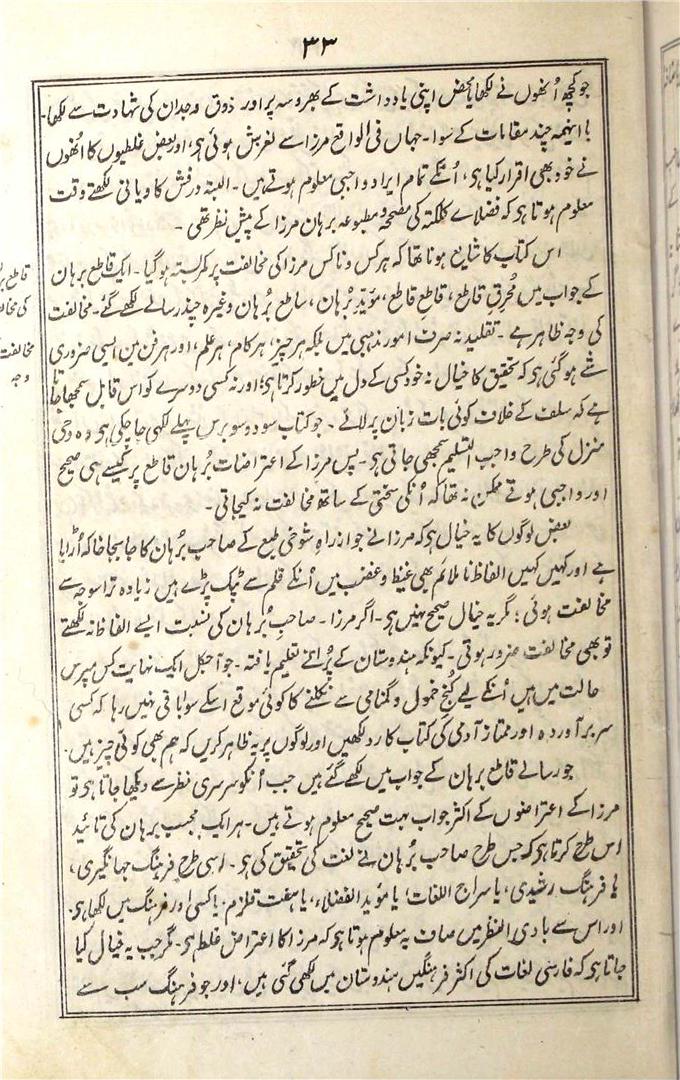 ۳۳
جو کچھ اُنھوں نے لکھا یا محض اپنی یادداشت کے بھروسہ پر اور ذوق وجدان کی شہادت سے لکھا۔
با اینہمہ چند مقامات کے سوا۔ جہاں فی الواقع مرزا سے لغزش ہوئی ہی، اور بعض غلطیوں کا اُنھوں
نے خود بھی اقرار کیا ہی، اُنکے تمام ایراد واجبی معلوم ہوتے ہیں۔ البتہ درفش کاویانی لکھتے وقت
معلوم ہوتا ہی کہ فضلاے کلکتہ کی مصححہ و مطبوعہ برہان مرزا کے پیش نظر تھی۔
اس کتاب کا شایع ہونا تھا کہ ہر کس و ناکس مرزا کی مخالفت پر کمربستہ ہوگیا۔ ایک قاطع برہان
کے جواب میں محُرق قاطع، قاطعِ قاطع، مؤیّد بُرہان، ساطع بُرہان وغیرہ چند رسالے لکھے گئے۔ مخالفت
کی وجہ ظاہر ہے۔ تقلید نہ صرف امور مذہبی میں بلکہ ہر چیز، ہر کام، ہر علم، اور ہر فن مین ایسی ضروری
شے ہوگئی ہی کہ تحقیق کا خیال نہ خود کسی کے دل میں خطور کرتا ہی؛ اور نہ کسی دوسرے کو اس قابل سمجھا جاتا
ہے کہ سلف کے خلاف کوئی بات زبان پر لائے۔ جو کتاب سو دو سو برس پہلے لکھی جا چکی ہی وہ وحی
منزل کی طرح واجب التسلیم سمجھی جاتی ہی۔ پس مرزا کے اعتراضات بُرہان قاطع پر کیسے ہی صحیح
اور واجبی ہوتے ممکن نہ تھا کہ اُنکی سختی کے ساتھ مخالفت نہ کیجاتی۔
بعض لوگوں کا یہ خیال ہی کہ مرزا نے جو ازراہِ شوخی طبع کے صاحب بُرہان کا جا بجا خاکہ اُڑایا
ہے اور کہیں کہیں الفاظ ناملائم بھی غیظ و غضب میں اُنکے قلم سے ٹپک پڑے ہیں زیادہ تر اسوجہ سے
مخالفت ہوئی؛ مگر یہ خیال صحیح نہیں ہی۔ اگر مرزا۔ صاحبِ بُرہان کی نسبت ایسے الفاظ نہ لکھتے
تو بھی مخالفت ضرور ہوتی۔ کیونکہ ہندوستان کے پُرانے تعلیم یافتہ۔ جو آجکل ایک نہایت کس مپرس
حالت میں ہیں اُنکے لیے کُنجِ خمول و گمنامی سے نکلنے کا کوئی موقع اسکے سوا باقی نہیں رہا کہ کسی
سربرآوردہ اور ممتاز آدمی کی کتاب کا رد لکھیں اور لوگوں پر یہ ظاہر کریں کہ ہم بھی کوئی چیز ہیں۔
جو رسالے قاطع برہان کے جواب میں لکھے گئے ہیں جب اُنکو سرسری نظر سے دیکھا جاتا ہی تو
مرزا کے اعتراضوں کے اکثر جواب بہت صحیح معلوم ہوتے ہیں۔ ہر ایک مجیب برہان کی تائید
اس طرح کرتا ہی کہ جس طرح صاحب بُرہان نے لغت کی تحقیق کی ہی۔ اسی طرح فرہنگ جہانگیری،
یا فرہنگ رشیدی، یا سراج اللغات؛ یا مؤید الفضلاء، یا ہفت قلزم، یا کسی اور فرہنگ میں لکھا ہی۔
اور اس سے بادی النظر میں صاف یہ معلوم ہوتا ہی کہ مرزا کا اعتراض غلط ہی۔ مگر جب یہ خیال کیا
جاتا ہی کہ فارسی لغات کی اکثر فرہنگیں ہندوستان میں لکھی گئی ہیں، اور جو فرہنگ سب سے
قاطع
کی
مخالفت
وجہ